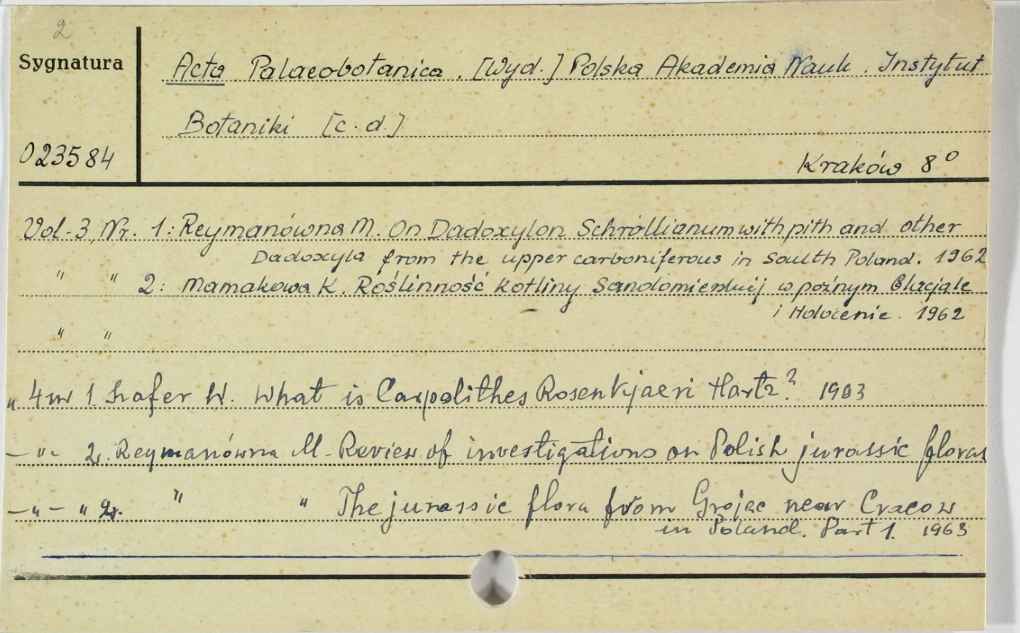 2
Sygnatura
Acta Palaeobotanica. [Wyd.] Polska Akademia Nauk. Instytut
Botaniki [c.d.]
023584
Kraków 8°
Vol. 3, Nr. 1: Reymanówna M. On Dadoxylon Schrollianum with pith and other
Dadoxyla from the upper carboniferous in South Poland. 1962
" " 2: Mamakowa K. Roślinność Kotliny Sandomierskiej w późnym Glacjale
i Holocenie. 1962
" "
" 4 nr 1 Szafer W. What is Carpolithes Rosenkjaeri Hartz? 1963
-"- 2. Reymanówna M. Review of investigations on Polish jurassic floras
-"- " 2. " " The jurassic flora from Grojec near Cracow
in Poland. Part 1. 1963